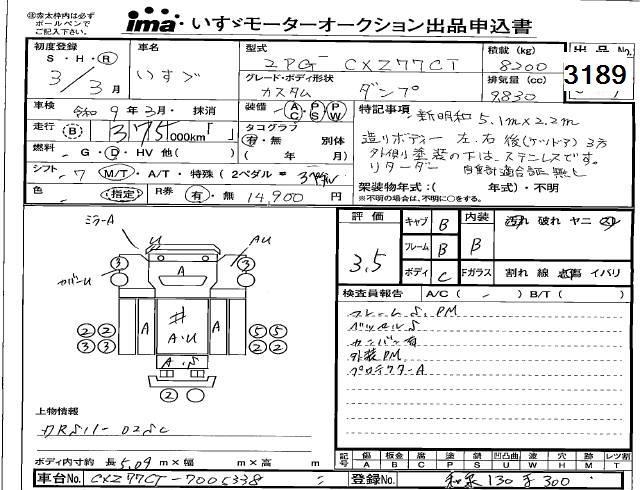 ㊟赤太枠内は必ず
ボールペンで
ご記入下さい。
ima いすゞモーターオークション出品申込書
初度登録
S・H・Ⓡ
3/3月
車名
いすゞ
型式
2PG- CXZ77CT
積載 (kg)
8200
出品No.
3189
グレード・ボディ形状
カスタム ダンプ
排気量 (cc)
9830
車検
令和 9年3月・抹消
装備
AC PS PW
特記事項
新明和 5.1m×2.2m
走行
Ⓑ 375,000km「 」
タコグラフ
有・無 別体
( 年 月)
造りボディー 左、右 後(ゲットア) 3方
外側り塗装の下は、ステンレスです。
リターダー 自重計適合証無し
燃料
G・Ⓓ・HV 他( )
シフト
7 M/T・A/T・特殊(2ペダル= 3ペダル
架装物年式:( 年式)・不明
※不明の場合は、不明に○をする。
色
(指定)
R券
有・無 14,900円
評価
3.5
キャブ B
フレーム B
ボディ C
内装 B
汚れ 破れ ヤニ
Fガラス 割れ 線 点傷 イバリ
ミラーA
U
AU
③
③
カバーU
A
A
A
# A・U
②②
③③
⑤⑤
②②
A・S
②
検査員報告 A/C( - )B/T( )
フレームS、PM
ベッセルS
カンバン有
外装PM
プロテクターA
上物情報
DRS11- 02SC
ボディ内寸約 長 5.09 m×幅 m×高 m
記号
傷 板金 腐 塗 錆 凹凸曲 波 穴 跡 レツ割
A B C P S U W H M T
車台No.
CXZ77CT-7005338
登録No.
和泉 130 す 300